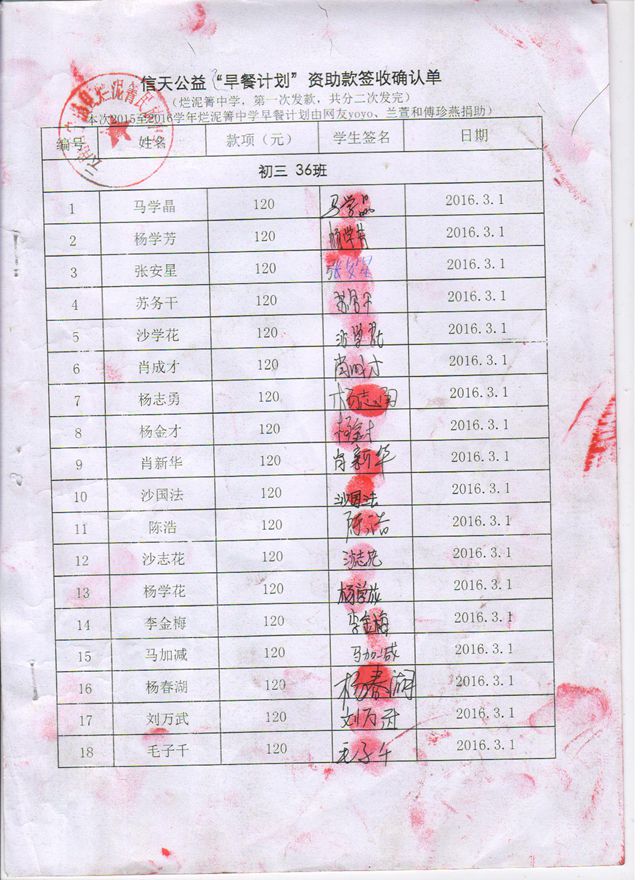 信天公益“早餐计划”资助款签收确认单
(烂泥箐中学，第一次发款，共分二次发完)
(本次2015至2016学年烂泥箐中学早餐计划由网友yoyo、兰萱和傅珍燕捐助)
编号 姓名 款项（元） 学生签名 日期
初三 36班
1 马学晶 120 马学晶 2016.3.1
2 杨学芳 120 杨学芳 2016.3.1
3 张安星 120 张安星 2016.3.1
4 苏务干 120 苏务干 2016.3.1
5 沙学花 120 沙学花 2016.3.1
6 肖成才 120 肖成才 2016.3.1
7 杨志勇 120 杨志勇 2016.3.1
8 杨金才 120 杨金才 2016.3.1
9 肖新华 120 肖新华 2016.3.1
10 沙国法 120 沙国法 2016.3.1
11 陈浩 120 陈浩 2016.3.1
12 沙志花 120 沙志花 2016.3.1
13 杨学花 120 杨学花 2016.3.1
14 李金梅 120 李金梅 2016.3.1
15 马加减 120 马加减 2016.3.1
16 杨春湖 120 杨春湖 2016.3.1
17 刘万武 120 刘万武 2016.3.1
18 毛子千 120 毛子千 2016.3.1